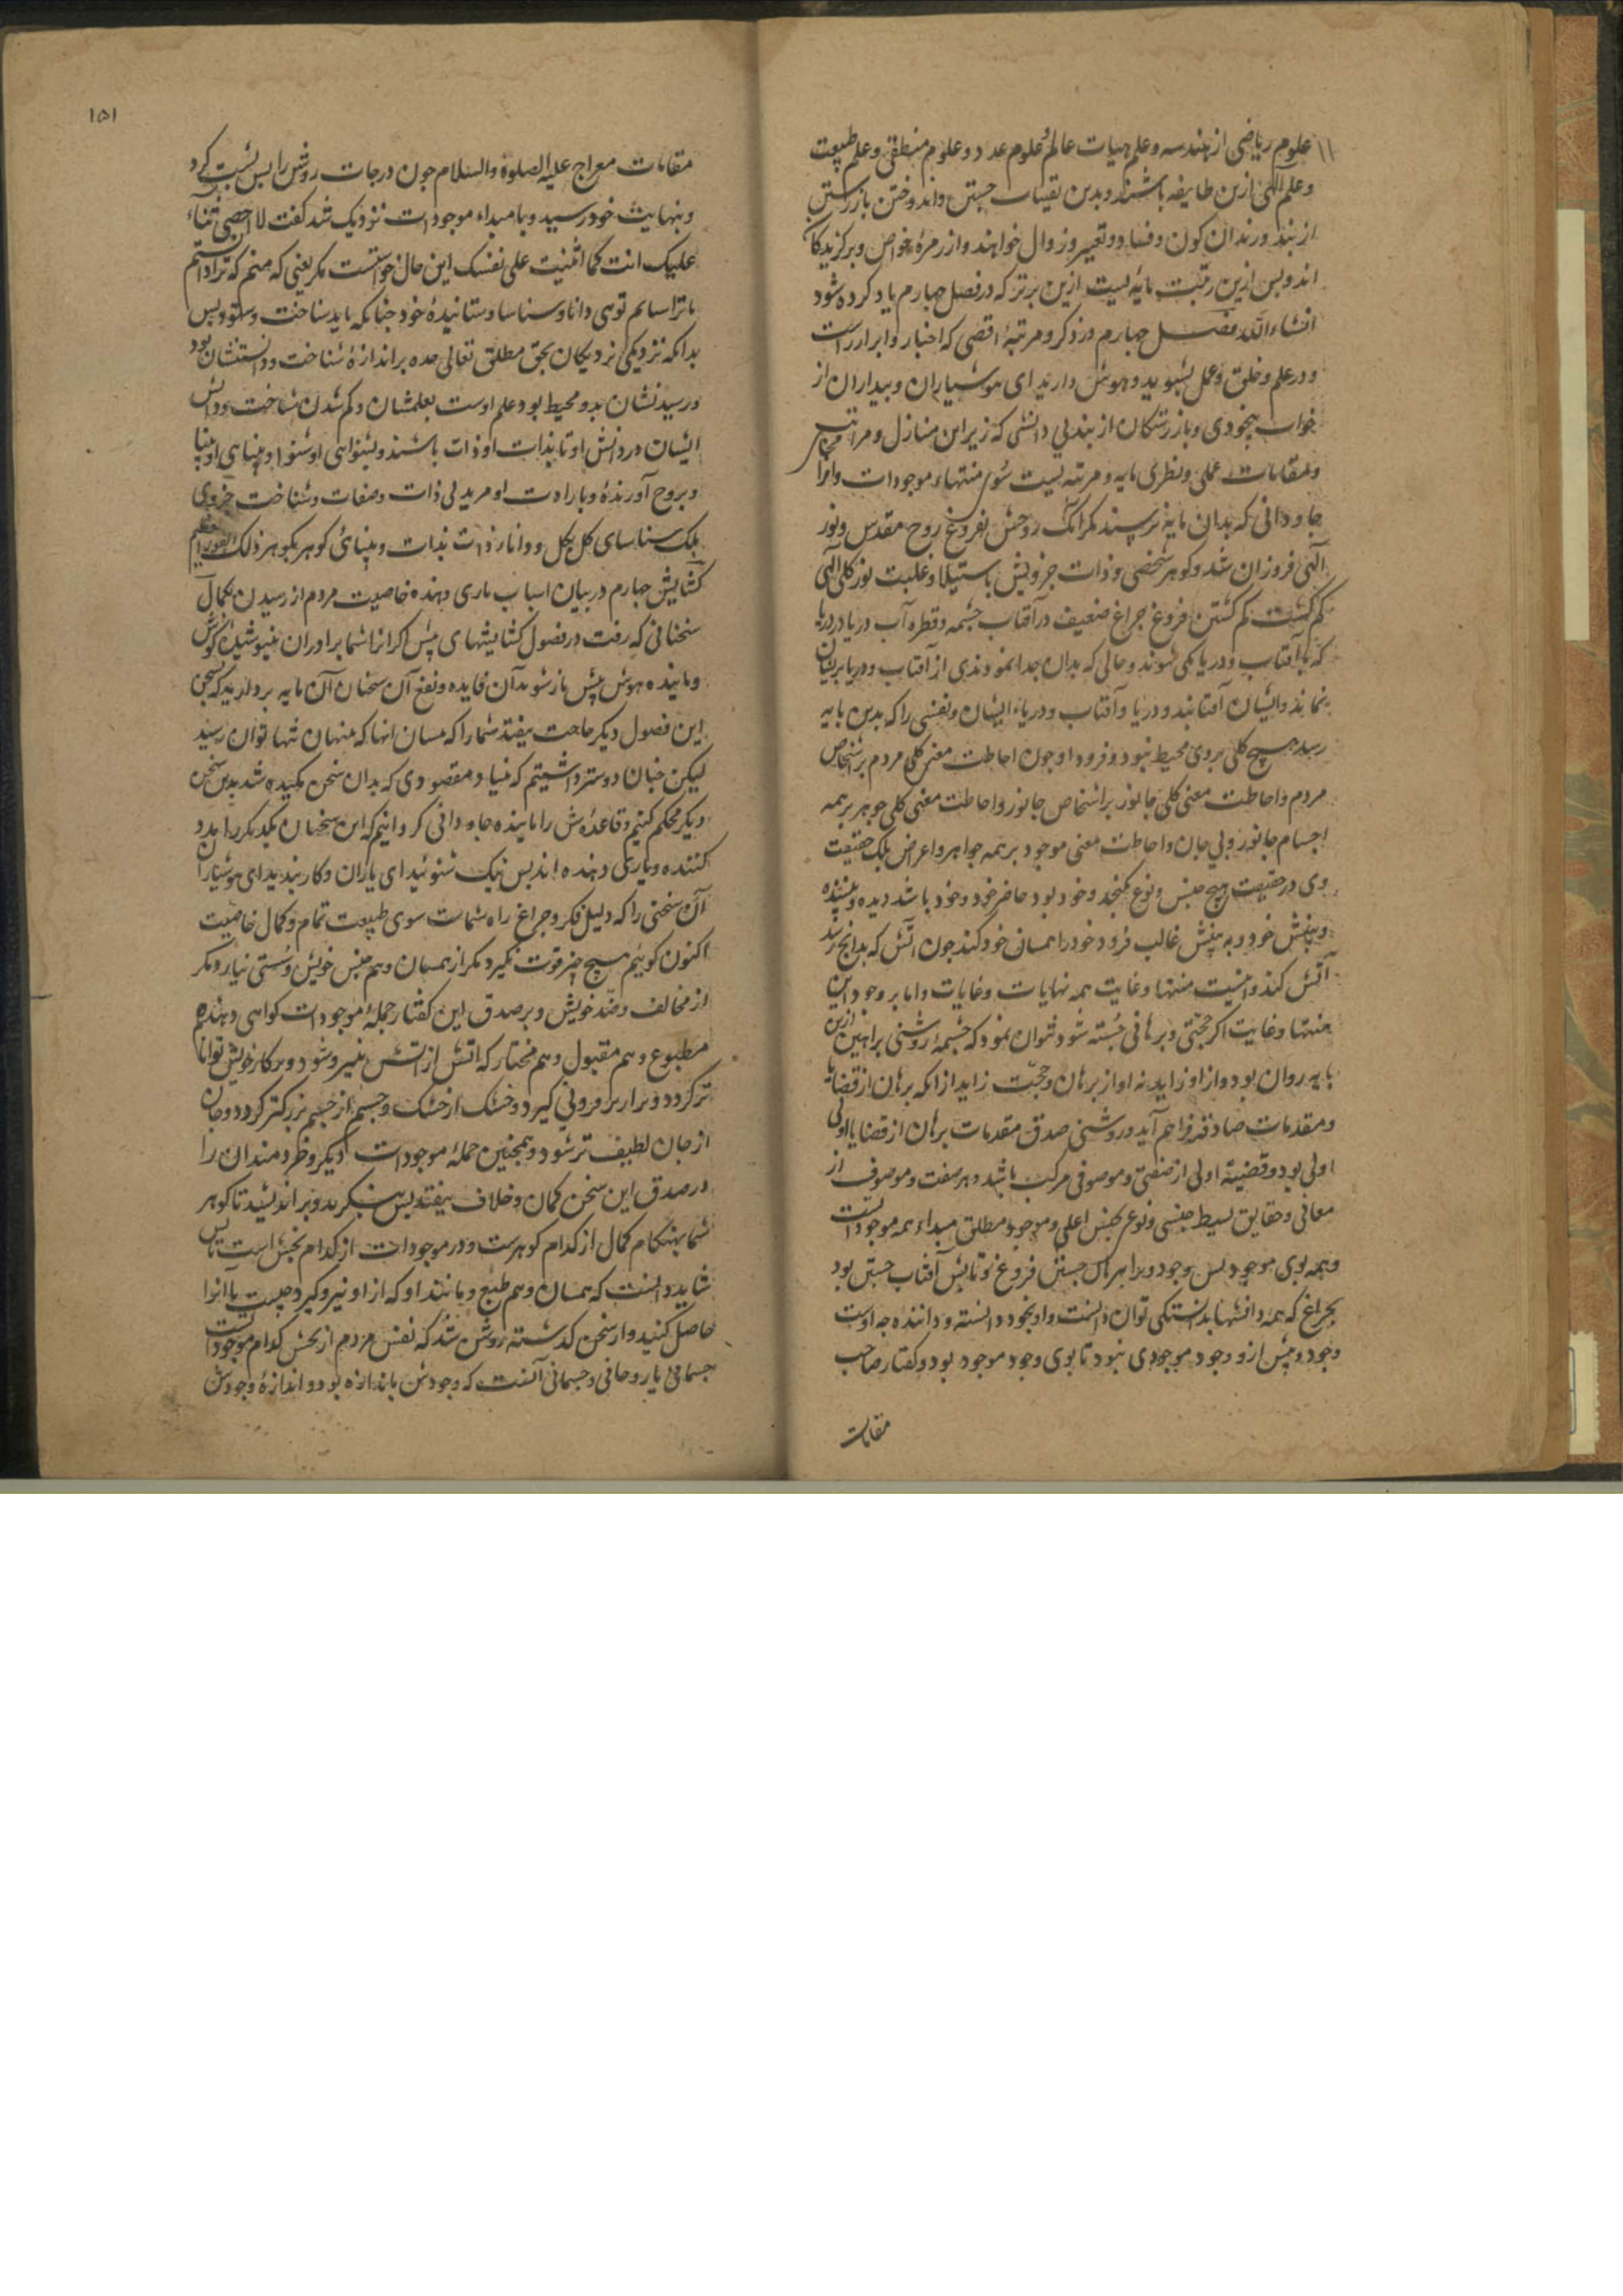 علوم ریاضی از هندسه و علم هیات عالم و علوم عدد و علوم منطقی و علم طبیعت
و علم الهی ازین طایفه باشند و بدین تقینات جستن و اندوختن باز رستن
از بند و زندان کون و فساد و تغییر و زوال خواهند و از زمرهٔ خواص و برکزیدکان
اند و پس ازین رتبت مایه ایست ازین برتر که در فصل چهارم یاد کرده شود
انشاء الله فصل چهارم در ذکر و مرتبهٔ اقصی که اخیار و ابرار راست
و در علم و خلق و عمل بشنوید و هوش دارید ای هوشیاران و بیداران از
خواب بیخودی و باز رستکان از بند بی دانشی که زبر این منازل و مراتب
و مقامات عملی و نظری مایه و مرتبه ایست سوی منتهاء موجودات و
جاودانی که بدان مایه نرسند مکر آنک روحش بفروغ روح مقدس و نور
الهی فروزان شد و کوهر شخصی و ذات جزویش باستیلا و غلبت نور کلی الهی
کم کشت کم کشتن فروغ چراغ ضعیف در آفتاب چشمه و قطره آب دریا در دریا
که با آفتاب و دریا یکی شوند و حالی که بدان جدا نمودندی از آفتاب و دریا بریشان
نماند و ایشان آفتابند و دریا و آفتاب و دریا ایشان و نفسی را که بدین مایه
رسد هیچ کلی بر وی محیط نبود و فرود او چون احاطت معنی کلی مردم بر اشخاص
مردم و احاطت معنی کلی جانور بر اشخاص جانور و احاطت معنی کلی جوهر بر همه
اجسام جانور و بی جان و احاطت معنی موجود بر همه جواهر و اعراض بلک حقیقت
وی در حقیقت هیچ جنس و نوع نکنجد و خود بود حاضر خود و خود باشد دیده و بیننده
و بینش خود و به بینش غالب فرود خود را همسان خود کند چون آتش که بدانچ رسد
آتش کند و اینست منتها و غایت همه نهایات و غایات و اما بر وجود این
منتها و غایت اکر حجتی و برهانی جسته شود نتوان نمود که چشمهٔ روشنی براهین ازین
مایه روان بود و از او زاید نه او از برهان و حجت زاید از آنکه برهان از قضایا
و مقدمات صادقه فراهم آید و روشنی صدق مقدمات برهان از قضایا اولی
اولی بود و قضیهٔ اولی از صفتی و موصوفی مرکب باشد و هر صفت و موصوف از
معانی و حقایق بسیط جنسی و نوع بجنس اعلی و موجود مطلق مبداء همه موجوداتست
و همه بوی موجود پس وجود ویرا براهین جستن فروغ و تابش آفتاب جستن بود
بچراغ که همه دانشها بدانستکی توان دانست و او بخود دانسته و داننده چه اوست
وجود و پیش از و وجود موجودی نبود تا بوی وجود موجود بود و کفتار صاحب
مقامات
۱۵۱
مقامات معراج علیه الصلوة والسلام چون درجات روش را پس پشت کرد
و بنهایت خود رسید و با مبداء موجودات نزدیک شد کفت لا احصی ثناء
علیک انت کما اثنیت علی نفسک این حال خواستست مکر یعنی که منم که ترا دانستم
یا ترا شناسم توی دانا و شناسا و ستانیدهٔ خود چنانکه باید شناخت و ستود پس
بدانکه نزدیکی نزدیکان بحق مطلق تعالی جده بر اندازهٔ شناخت و دانستشان بود
و رسیدنشان بدو محیط بود علم اوست بعلمشان و کم شدن شناخت و دانش
ایشان در دانش او تا بذات او ذات باشند و بشنوایی او شنوا و بینایی او بینا
و بروح آورندهٔ و بارادت او مرید بی ذات و صفات و شناخت جزوی
بلک شناسای کل بکل و دانا ذات بذات و بینایی کوهر بکوهر ذلک الفوز العظیم
کشایش چهارم در بیان اسباب یاری دهنده خاصیت مردم از رسیدن بکمال
سخنانی که رفت در فصول کشایشهای پیش اکر آنرا شما برادران بنیوشیدن کوش
و ماینده هوش پیش باز شوید آن فایده و نفع آن سخنان آن مایه بردارید که بسخن
این فصول دیکر حاجت نیفتد شما را که بسان آنها که بنهان تنها توان رسید
لیکن چنان دوستر داشتیم که بنیاد مقصودی که بدان سخن مکیده شد بدین سخن
دیکر محکم کنیم و قاعدهٔش را ماینده جاودانی کردانیم که این سخنان یکدیکر را مدد
کننده و یاری دهنده اند پس نیک شنوید ای یاران و کار بندید ای هوشیاران
آن سخنی را که دلیل فکر و چراغ راه شماست سوی طبیعت تمام و کمال خاصیت
اکنون کوئیم هیچ چیز قوت نکیرد مکر از همسان و هم جنس خویش و سستی نیارد مکر
از مخالف و ضد خویش و بر صدق این کفتار جملهٔ موجودات کواهی دهنده هم
مطبوع و هم مقبول و هم مختار که آتش از آتش نیرو شود و بر کار خویش توانا
تر کردد و تر از تر فزونی کیرد و خشک از خشک و جسم از جسم بزرکتر کردد و جان
از جان لطیف تر شود و همچنین جملهٔ موجودات دیکر و خردمندان را
در صدق این سخن کمان و خلاف نیفتد پس بنکرید و براندیشید تا کوهر
شما بهنکام کمال از کدام کوهرست و در موجودات از کدام بخش است پس
شاید دانست که همسان و هم طبع و مانند او که از او نیرو کیرد چیست تا آنرا
حاصل کنید و از سخن کذشته روشن شد که نفس مردم از بخش کدام موجوداتست
جسمانی یا روحانی و جسمانی آنست که وجودش باندازه بود و اندازهٔ وجودش